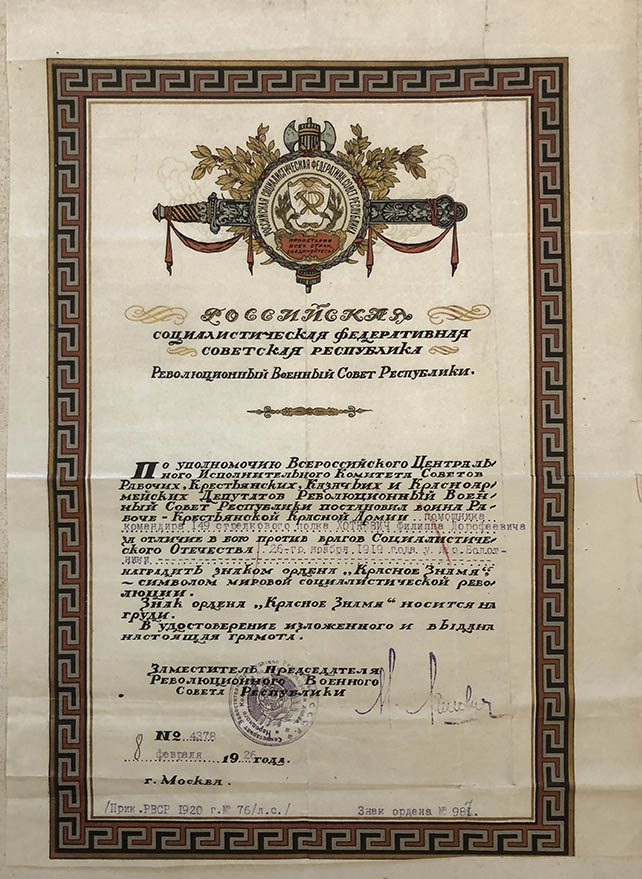 РОССИЙСКАЯ СОЦИАЛИСТИЧЕСКАЯ ФЕДЕРАТИВН. СОВЕТ. РЕСПУБЛИКА
ПРОЛЕТАРИИ
ВСЕХ СТРАН,
СОЕДИНЯЙТЕСЬ!
РОССИЙСКАЯ
СОЦИАЛИСТИЧЕСКАЯ ФЕДЕРАТИВНАЯ
СОВЕТСКАЯ РЕСПУБЛИКА
РЕВОЛЮЦИОННЫЙ ВОЕННЫЙ СОВЕТ РЕСПУБЛИКИ.
По уполномочию Всероссийского Централь-
ного Исполнительного Комитета Советов
Рабочих, Крестьянских, Казачьих и Красноар-
мейских Депутатов Революционный Воен-
ный Совет Республики постановил воина Ра-
боче-Крестьянской Красной Армии помощника
командира 149 стрелкового полка ХОТКЕВИЧ Филиппа Дорофеевича
за отличие в бою против врагов Социалистиче-
ского Отечества 26-го ноября 1919 года у дер.
наградить знаком ордена „Красное Знамя"
– символом мировой социалистической рево-
люции.
Знак ордена „Красное Знамя" носится на
груди.
В удостоверение изложенного и выдана
настоящая грамота.
Заместитель Председателя
Революционного Военного
Совета Республики
№ 4378
8 февраля 1926 года.
г. Москва.
/Прик.РВСР 1920 г.№ 76/л.с./ Знак ордена № 987.